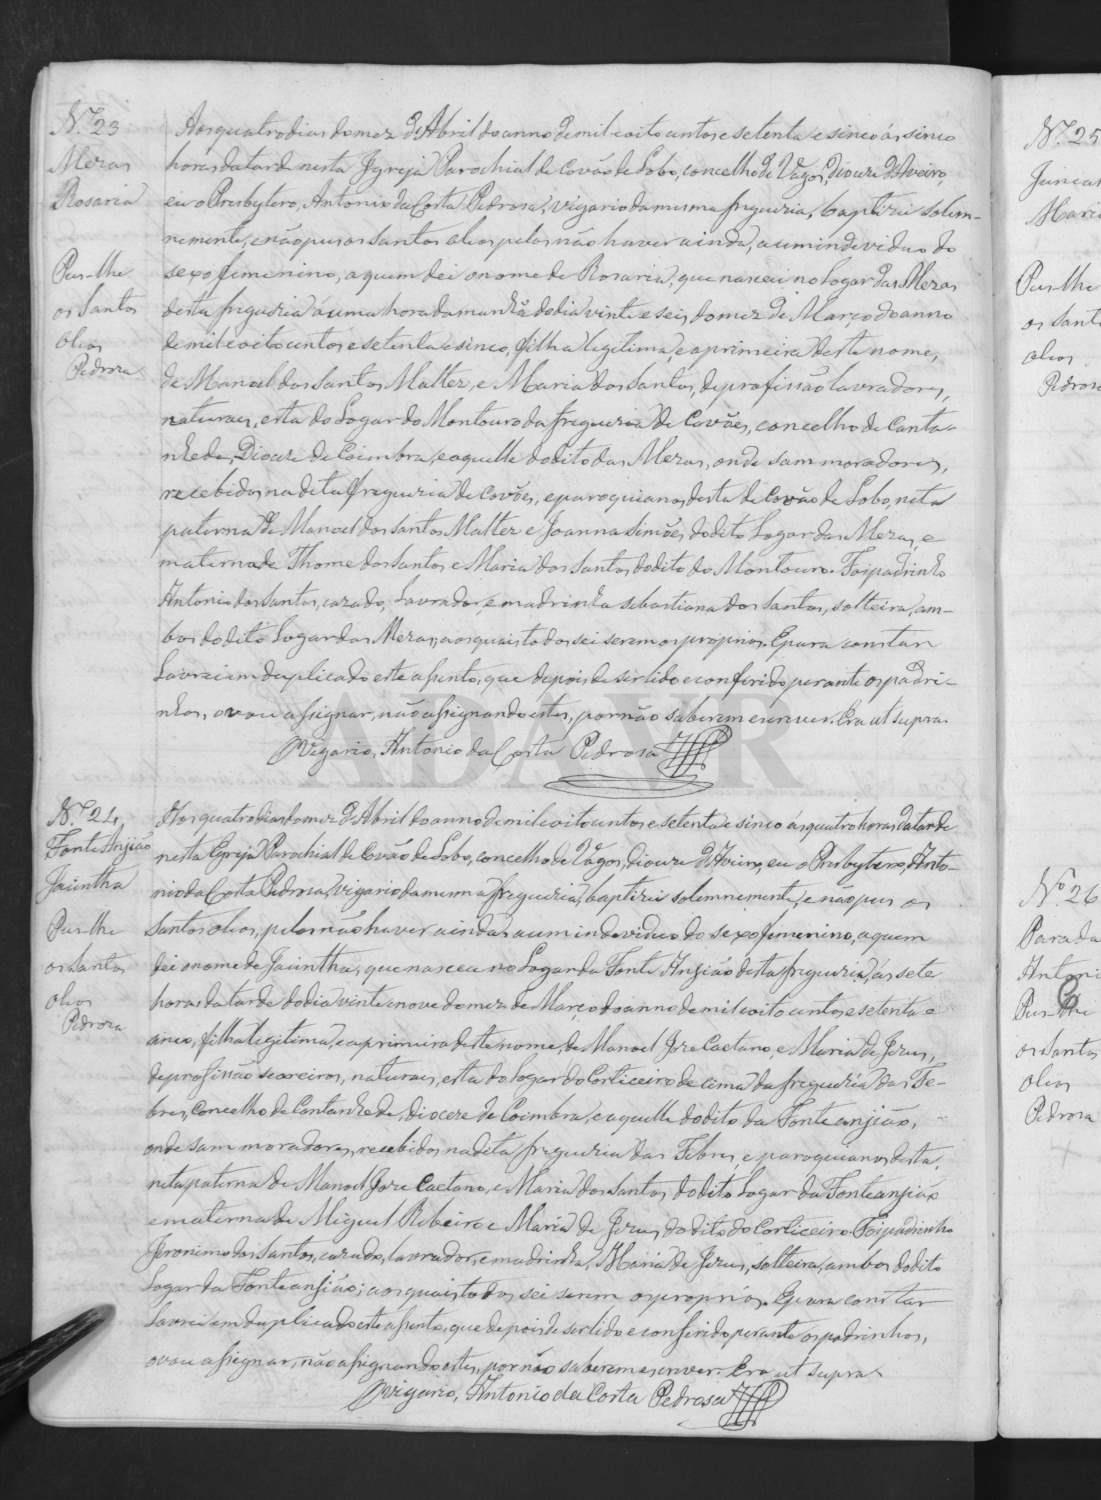 N.º 23
Mezas
Rosaria
Pus-lhe
os Santos
oleos
Pedroza
Aos quatro dias do mez d'Abril do anno de mil e oito centos e setenta e sinco ás sinco
horas da tarde nesta Igreja Parochial de Covão de Lobo, concelho de Vagos, Diocze d'Aveiro,
eu o Presbytero, Antonio da Costa Pedrosa, vigario da mesma freguezia, baptizei solem-
nemente, e não pus os Santos oleos pelos não haver ainda, a um individuo do
sexo femenino, a quem dei o nome de Rosaria, que nasceu no Logar das Mezas
desta freguezia á uma hora da manhã do dia vinte e seis do mez de Março do anno
de mil e oito centos e setenta e sinco, filha legitima, e a primeira deste nome,
de Manoel dos Santos Malter, e Maria dos Santos, de profissão lavradores,
naturaes, esta do Logar do Montouro da freguezia de Covões, concelho de Canta-
nhede, Diocze de Coimbra, e aquelle do dito das Mezas, onde sam moradores,
recebidos na dita freguezia de Covões, e paroquianos desta de Covão de Lobo, neta
paterna de Manoel dos Santos Malter e Joanna Simões do dito Logar das Mezas, e
materna de Thome dos Santos e Maria dos Santos do dito do Montouro. Foi padrinho
Antonio dos Santos, cazado, Lavrador, e madrinha Sebastiana dos Santos, solteira, am-
bos do dito Logar das Mezas, aos quais todos sei serem os proprios. E para constar
Lavrei em duplicado este assento, que depois de ser lido e conferido perante os padri-
nhos, o vou assignar, não assignando estes, por não saberem escrever. Era ut supra.
O Vigario, Antonio da Costa Pedrosa
N.º 24
Fonte Anjião
Jacintha
Pus-lhe
os Santos
oleos
Pedroza
Aos quatro dias do mez d'Abril do anno de mil e oito centos e setenta e sinco ás quatro horas da tarde
nesta Igreja Parochial de Covão de Lobo, concelho de Vagos, Diocze d'Aveiro, eu o Presbytero, Anto-
nio da Costa Pedrosa, vigario da mesma freguezia, baptizei solemnemente, e não pus os
Santos oleos, pelos não haver ainda, a um individuo do sexo femenino, a quem
dei o nome de Jacintha, que nasceu no Logar da Fonte Anjião desta freguezia, ás sete
horas da tarde do dia vinte e nove do mez de Março do anno de mil e oito centos e setenta e
sinco, filha legitima, e a primeira deste nome, de Manoel Joze Caetano, e Maria de Jezus,
de profissão seareiros, naturaes, esta do Logar do Corticeiro de cima da freguezia das Fe-
bres, Concelho de Cantanhede, diocese de Coimbra, e aquelle do dito da Fonte anjião,
onde sam moradores, recebidos na dita freguezia das Febres, e paroquianos desta,
neta paterna de Manoel Joze Caetano, e Maria dos Santos do dito Logar da Fonte anjião
e materna de Miguel Ribeiro e Maria de Jezus, do dito do Corticeiro. Foi padrinho
Jeronimo dos Santos, cazado, lavrador, e madrinha, Maria de Jezus, solteira, ambos do dito
Logar da Fonte anjião; aos quais todos sei serem os proprios. E para constar
Lavrei em duplicado este assento, que depois de ser lido e conferido perante os padrinhos,
o vou assignar, não assignando estes, por não saberem escrever. Era ut supra.
O Vigario, Antonio da Costa Pedrosa
N.º 25
Pus-lhe
os Santos
oleos
Pedroza
Nº 26
Parada
Antoni
Pus-lhe
os Santos
oleos
Pedroza
ADAVR